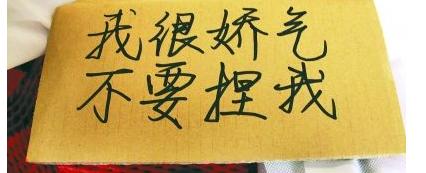 我很娇气
不要捏我